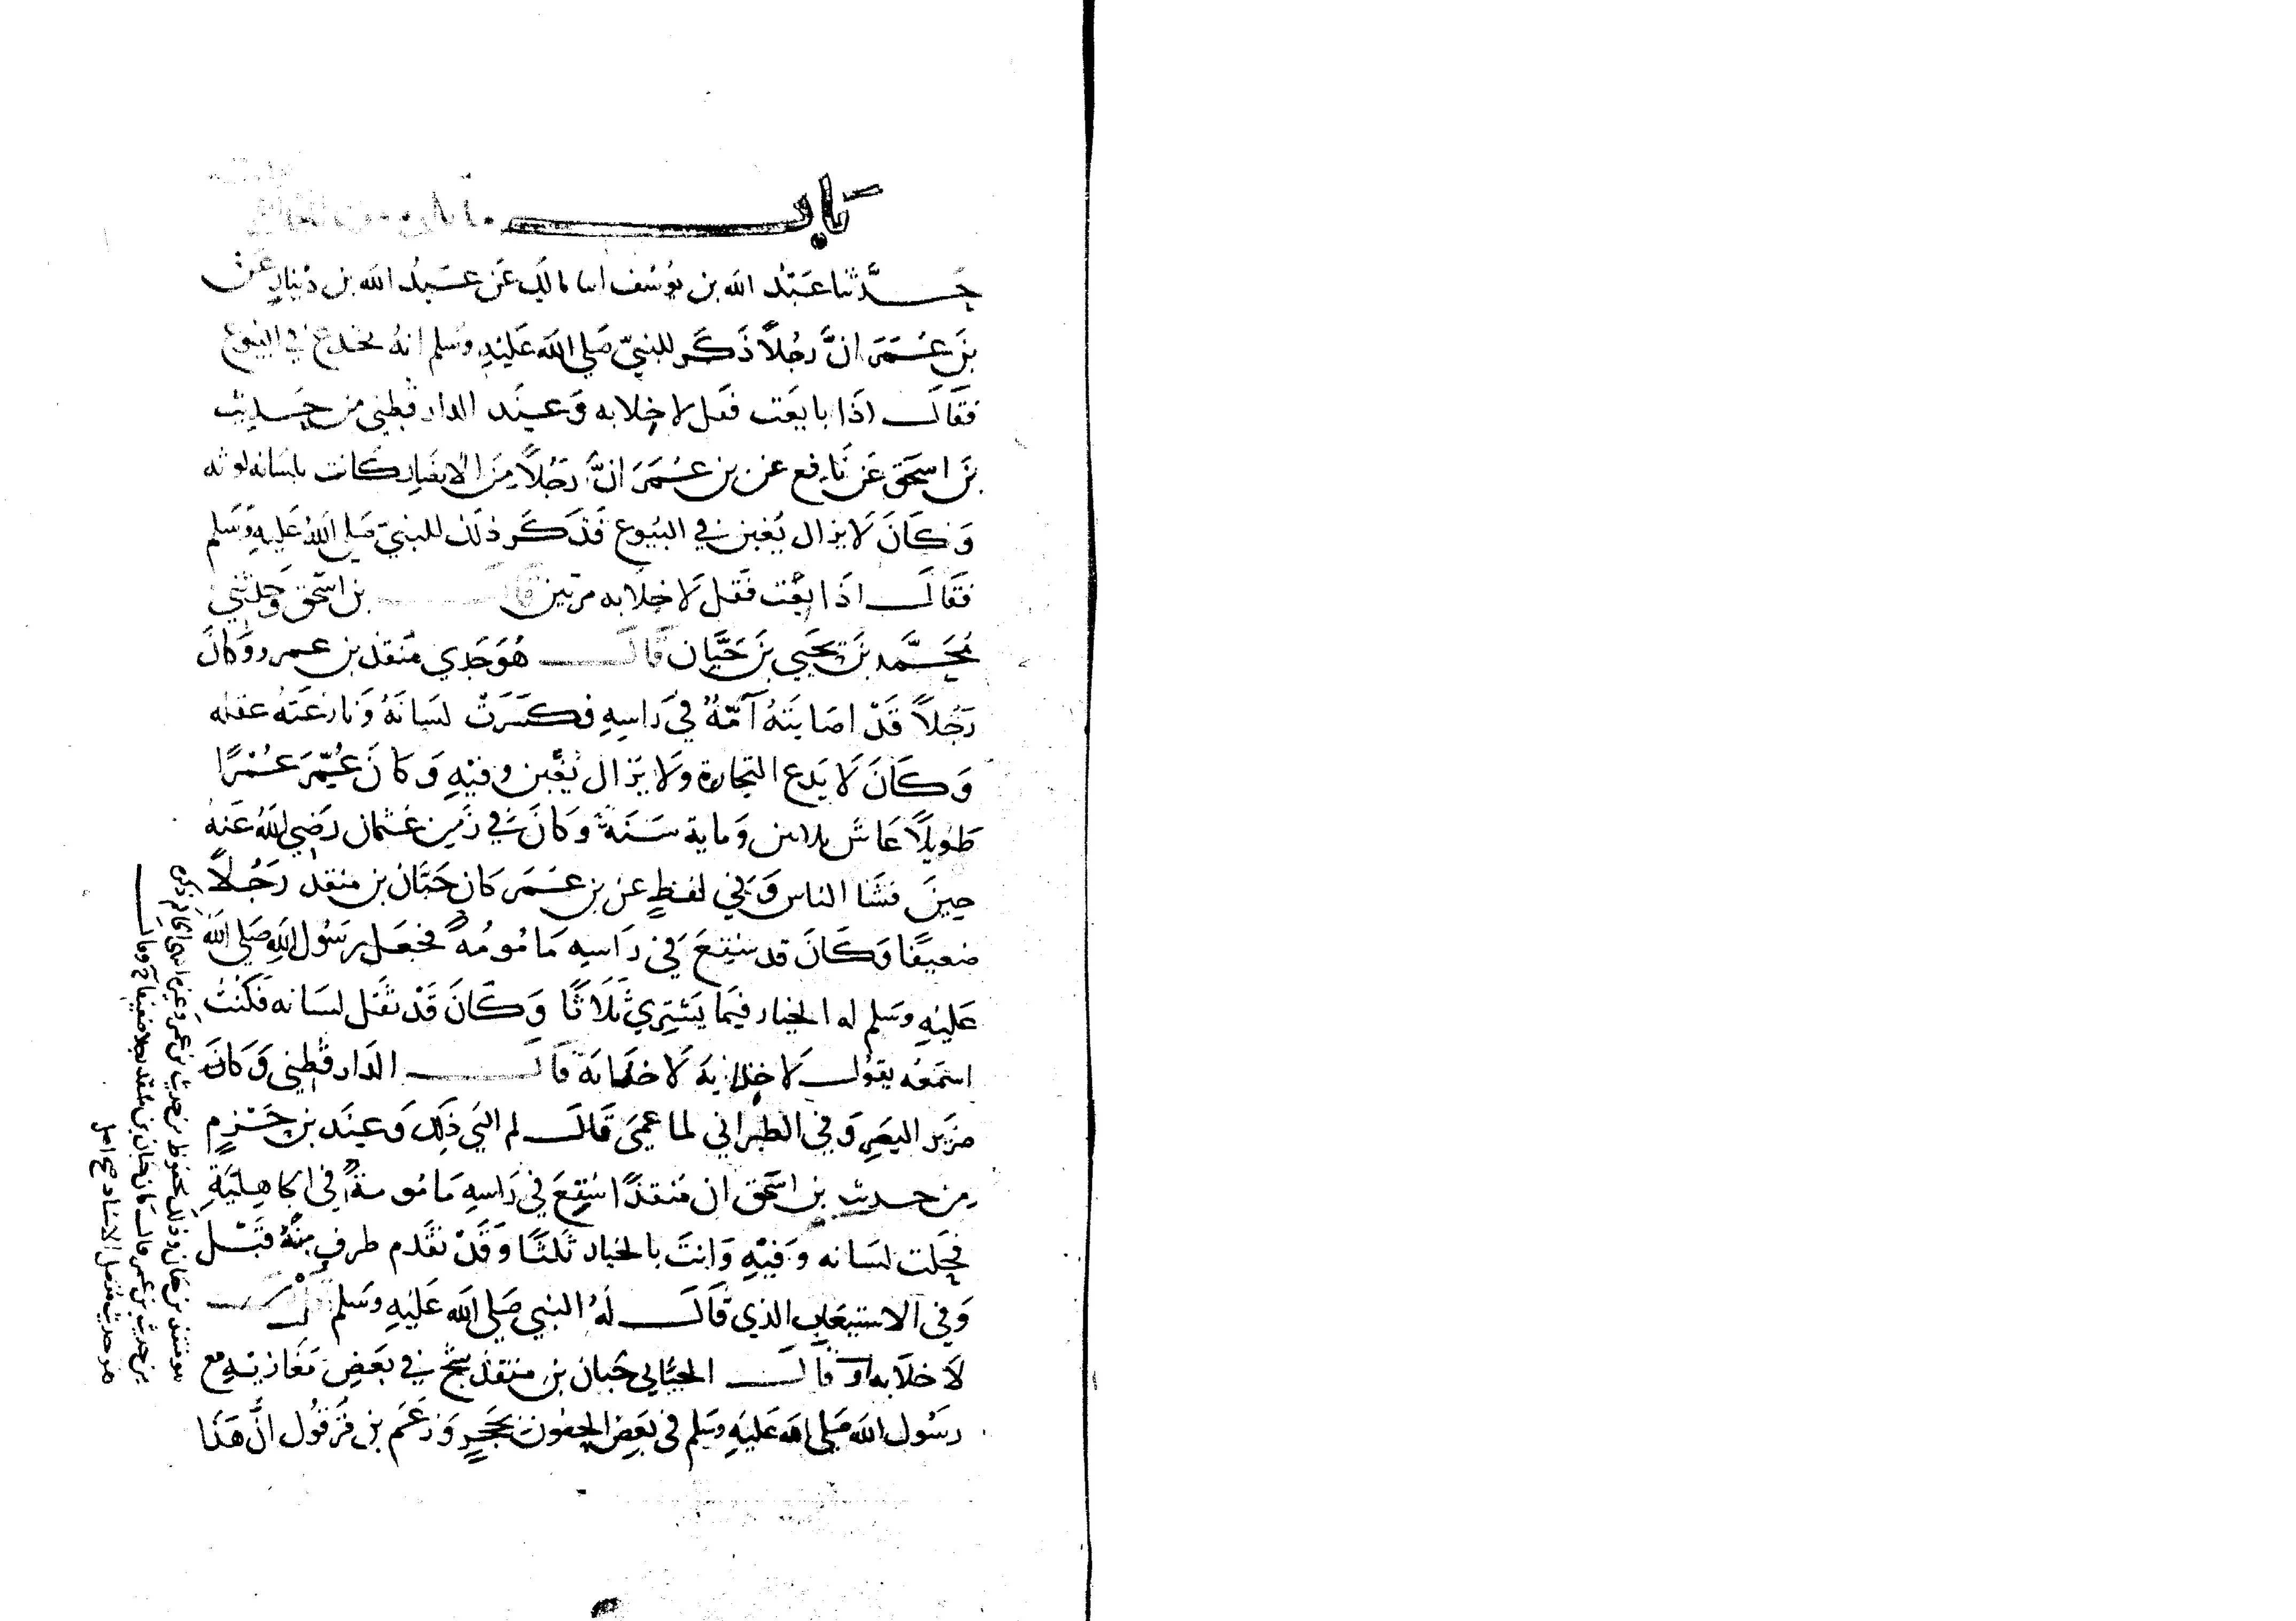 باب
حدثنا عبد الله بن يوسف انبا مالك عن عبد الله بن دينار عن
بن عمر انَّ رجُلاً ذكر للنبيّ صلي الله عليه وسلم انه يخدع في البيوع
فقال اذا بايعت فقل لا خلابه وعند الدارقطني من حديث
بن اسحق عن نافع عن بن عمر انَّ رجُلاً من الانصار كانت بلسانه لوثه
وكان لا يزال يُغبن في البيوع فذكر ذلك للنبيّ صلي الله عليه وسلم
فقال اذا بعت فقل لا خلابه مرتين قال بن اسحق وحدثني
محمد بن يحيي بن حبَّان قال هو جدي منقذ بن عمرو وكان
رجُلاً قد اصابته آمّةٌ في راسه فكسرت لسانه ونازعته عقله
وكان لا يدع التجارة ولا يزال يغبن وفيه وكان عُمّر عُمْرًا
طويلاً عاش ثلاثين وماية سنة وكان في زمن عثمان رضي الله عنه
حين فشا الناس وفي لفظ عن بن عمر كان حبَّان بن منقذ رجُلاً
ضعيفا وكان قد سُفِعَ في راسه مامومُهً فجعل رسول الله صلي الله
عليه وسلم له الخيار فيما يشتري ثلاثا وكان قد ثقل لسانه فكنت
اسمعه يقول لا خذابة لا خذابة قال الدارقطني وكان
ضرير البصر وفي الطبراني لما عمي قال لم النبي ذلك وعند بن حزم
من حديث بن اسحق ان مُنقذًا سُفِعَ في راسه مامومةً في الجاهلية
فخبلت لسانه وفيه وانت بالخيار ثلثًا وقد تقدم طرف منه قبل
وفي الاستيعاب الذي قال له النبي صلي الله عليه وسلم قل
لا خلابه او قال الجيَّاني حَبان بن منقذ شج في بعض مغازيه مع
رسول الله صلي الله عليه وسلم في بعض الحصون بحجر وزعم بن قرقول انَّ هذا
هو منقذ بن حبان وذلك محفوظ من حديث بن عمر وغيره
بن حديث بن عمر قال كان حبان بن منقذ رجلا ضعيفا وقال
هو حديث متصل الاسناد